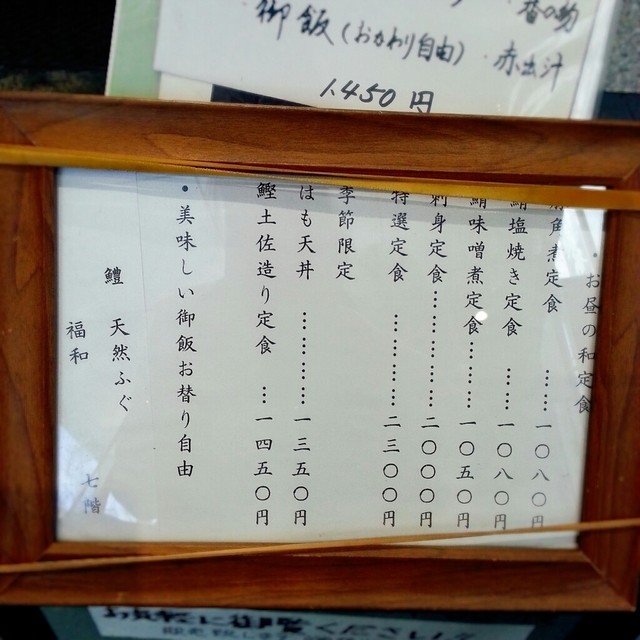 御飯（おかわり自由）・赤出汁
1.450円
・お昼の和定食
角煮定食 ……一〇八〇円
鯖塩焼き定食 ……一〇八〇円
鯖味噌煮定食……一〇五〇円
刺身定食…………二〇〇〇円
特選定食 …………二三〇〇円
季節限定
はも天丼 …………一三五〇円
鰹土佐造り定食 …一四五〇円
・美味しい御飯お替り自由
鱧 天然ふぐ
福和 七階